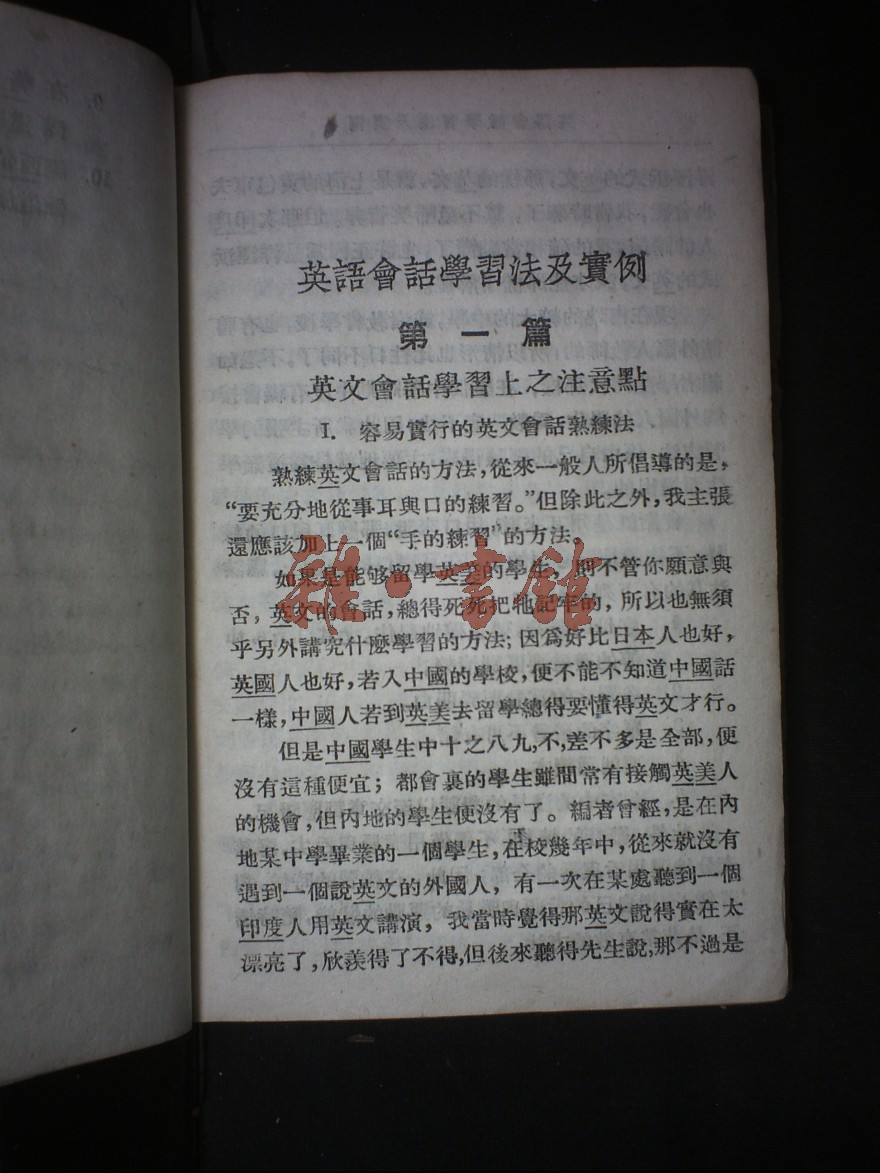 英語會話學習法及實例
第一篇
英文會話學習上之注意點
I. 容易實行的英文會話熟練法
熟練英文會話的方法,從來一般人所倡導的是,
“要充分地從事耳與口的練習。”但除此之外,我主張
還應該加上一個“手的練習”的方法。
如果是能够留學英美的學生,則不管你願意與
否,英文的會話,總得死死把牠記牢的,所以也無須
乎另外講究什麼學習的方法;因爲好比日本人也好,
英國人也好,若入中國的學校,便不能不知道中國話
一樣,中國人若到英美去留學總得要懂得英文才行。
但是中國學生中十之八九,不,差不多是全部,便
沒有這種便宜;都會裏的學生雖間常有接觸英美人
的機會,但內地的學生便沒有了。編者曾經,是在內
地某中學畢業的一個學生,在校幾年中,從來就沒有
遇到一個說英文的外國人,有一次在某處聽到一個
印度人用英文講演,我當時覺得那英文說得實在太
漂亮了,欣羨得了不得,但後來聽得先生說,那不過是
雜·書館
9.
10.